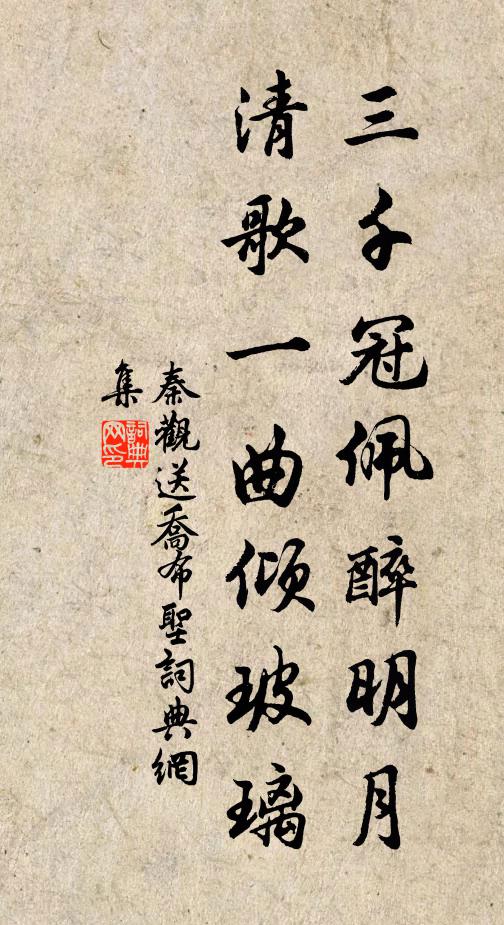 三千冠佩醉明月
清歌一曲倾玻璃
秦觀送喬希聖詞典網
集
詞典网印